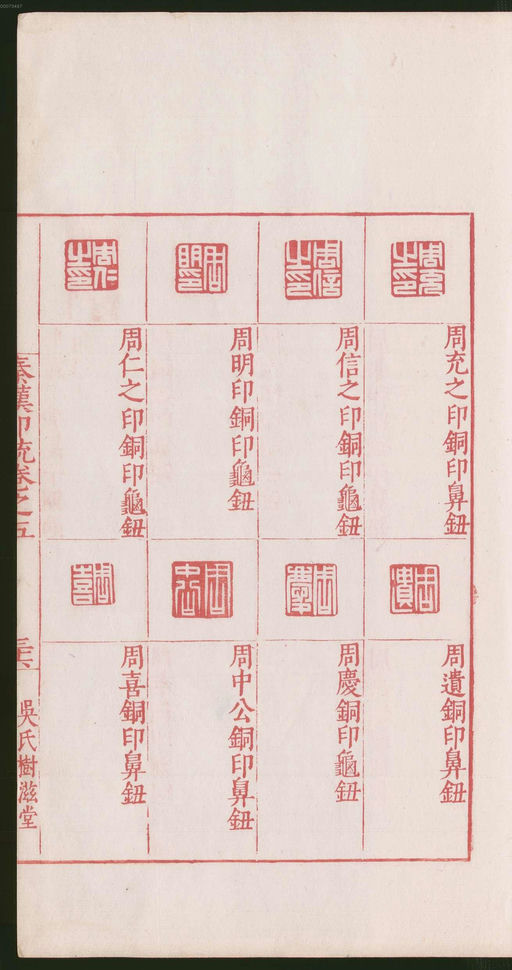 周充之印銅印鼻鈕
周信之印銅印龜鈕
周明印銅印龜鈕
周仁之印銅印龜鈕
周遺銅印鼻鈕
周慶銅印龜鈕
周中公銅印鼻鈕
周喜銅印鼻鈕
秦漢印統卷之五
吳氏樹滋堂